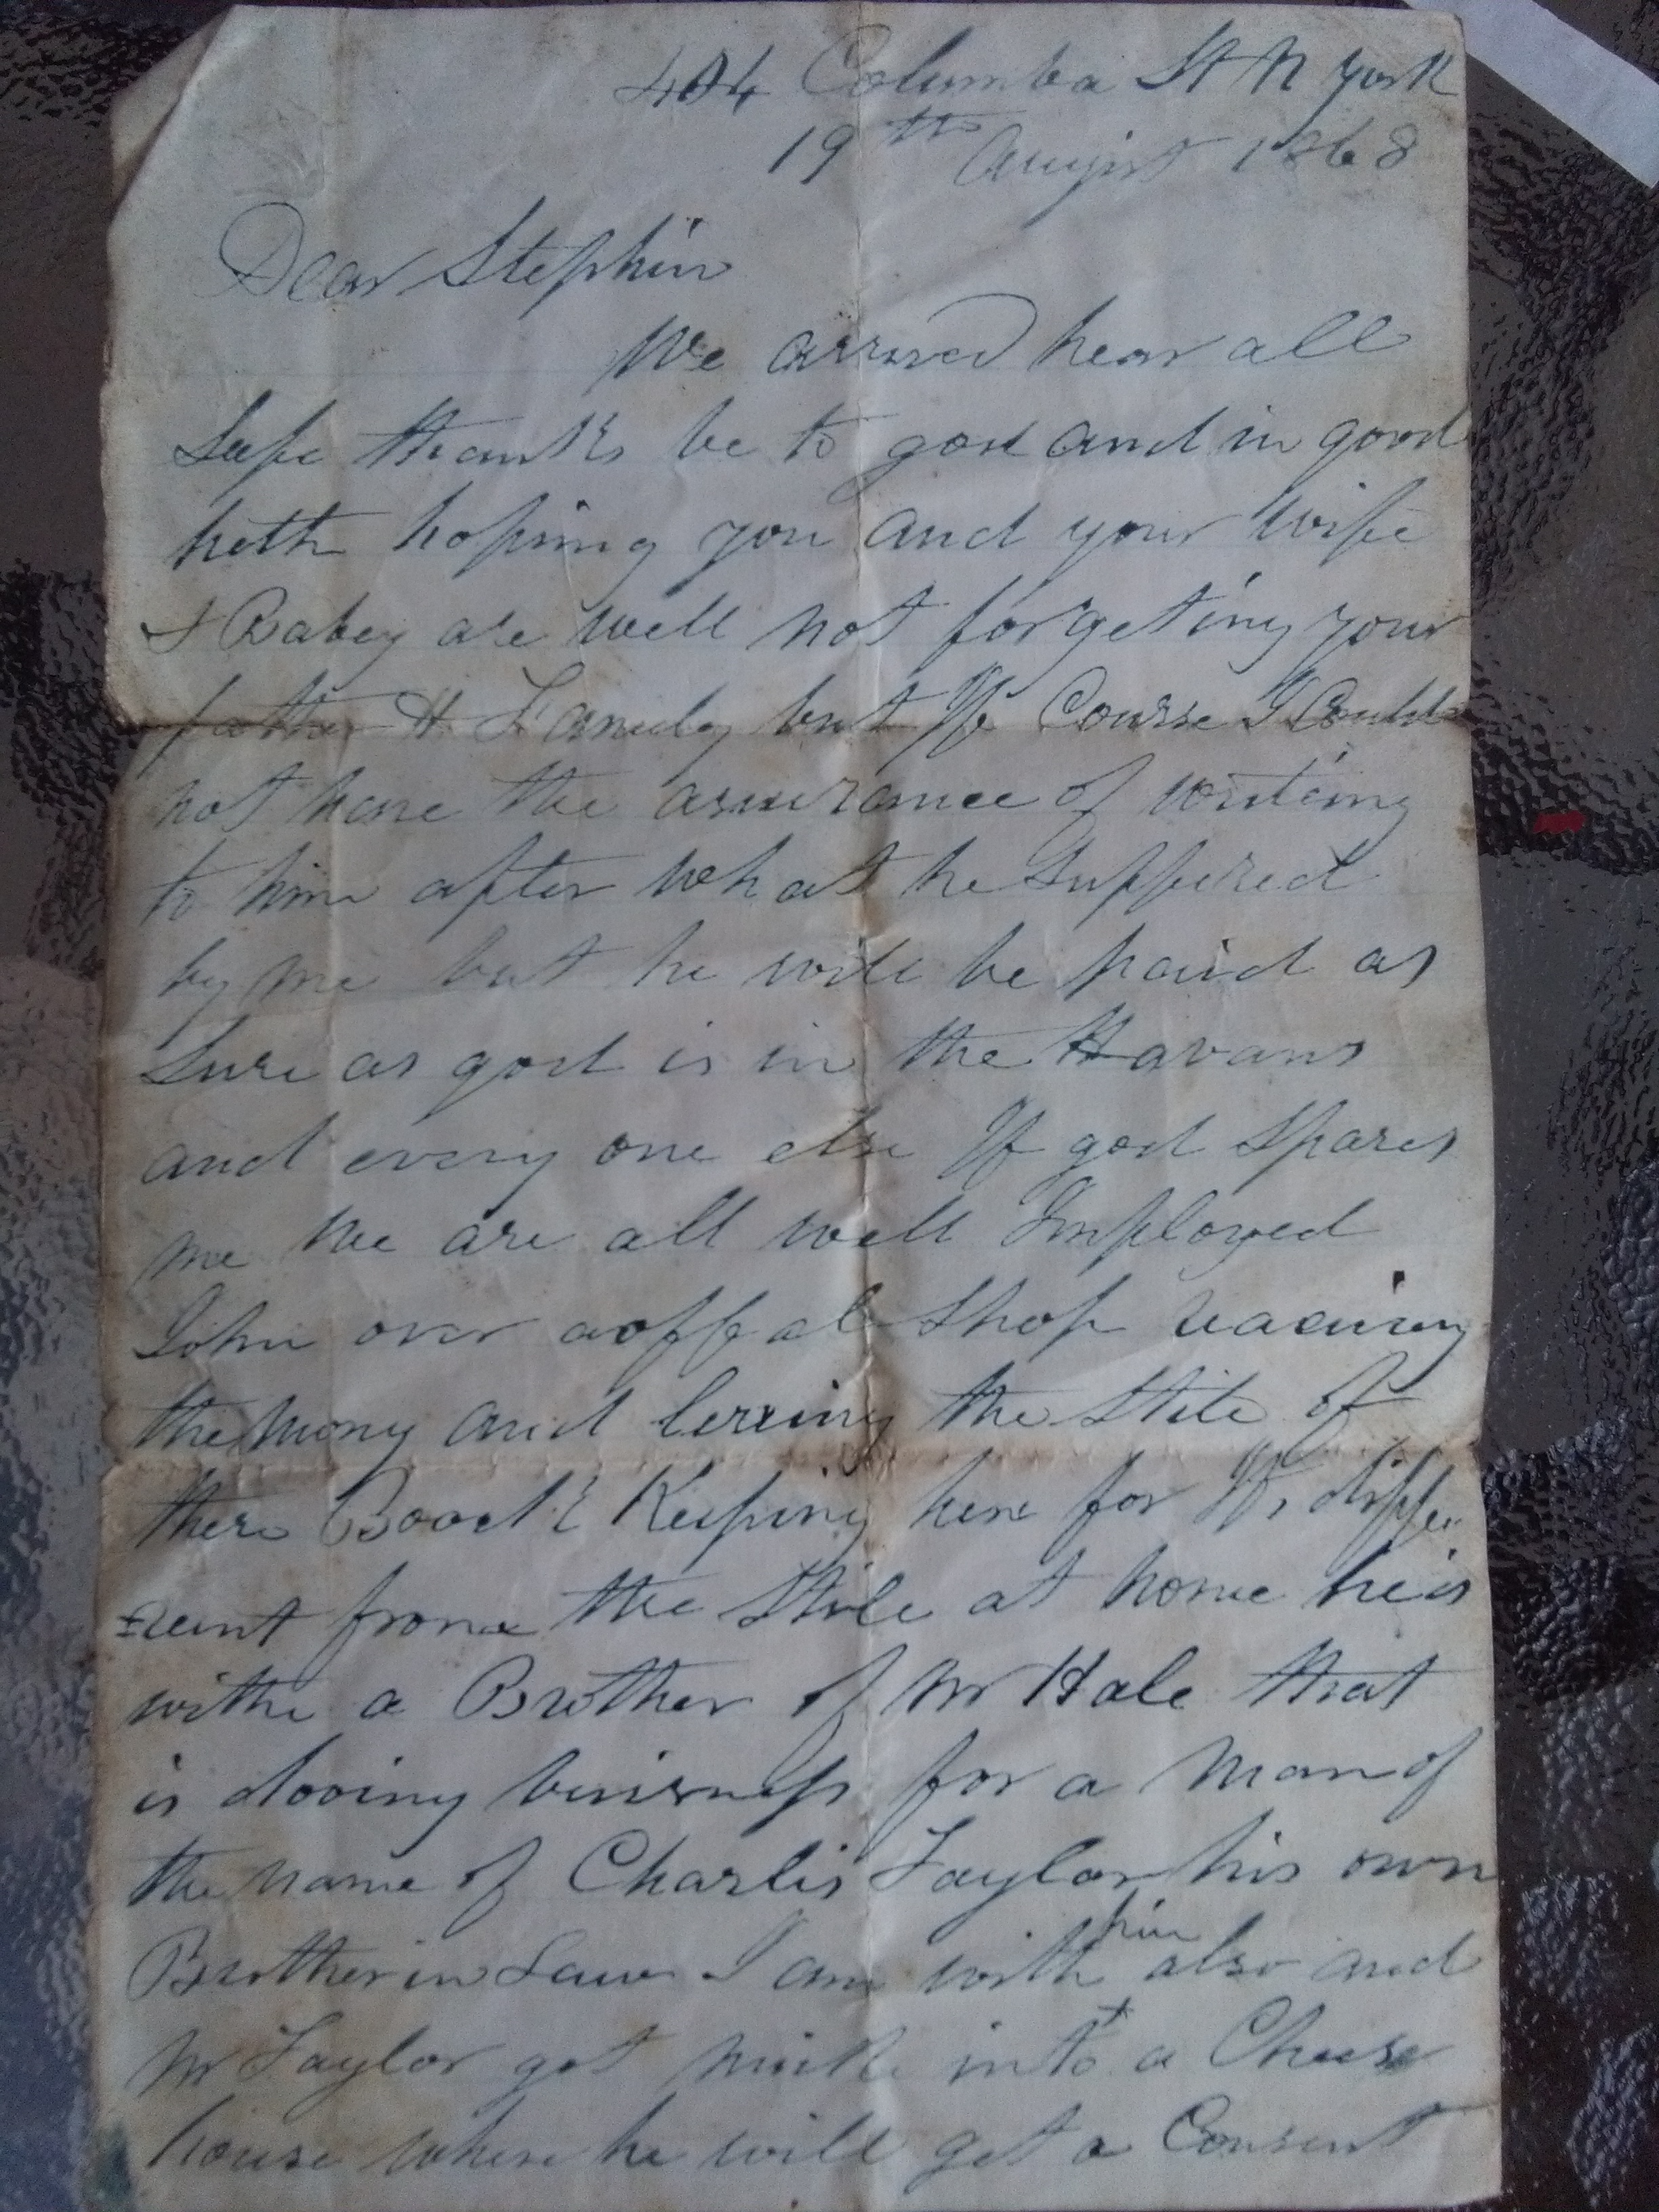 404 Columba St N York
19th August 1868
Dear Stephin
We arrived hear all
Safe thanks be to god and in good
helth hoping you and your wife
& Babey are well not forgeting your
father & Family but If Course I Could
not have the assurance of writing
to him after what he Suffered
by me but he will be paid as
Sure as god is in the Havans
and every one else If god Spares
me we are all well Imployed
John over a offal Shop
the mony and the Stile of
there Boock Keeping here for It, diffe
=rent frome the Stile at home he is
withe a Brother of Mr Hale that
is dooing buisness for a Man of
the name of Charlis Taylor his own
Brother in Law I am with him also and
Mr Taylor got into a Cheese
house where he will get a